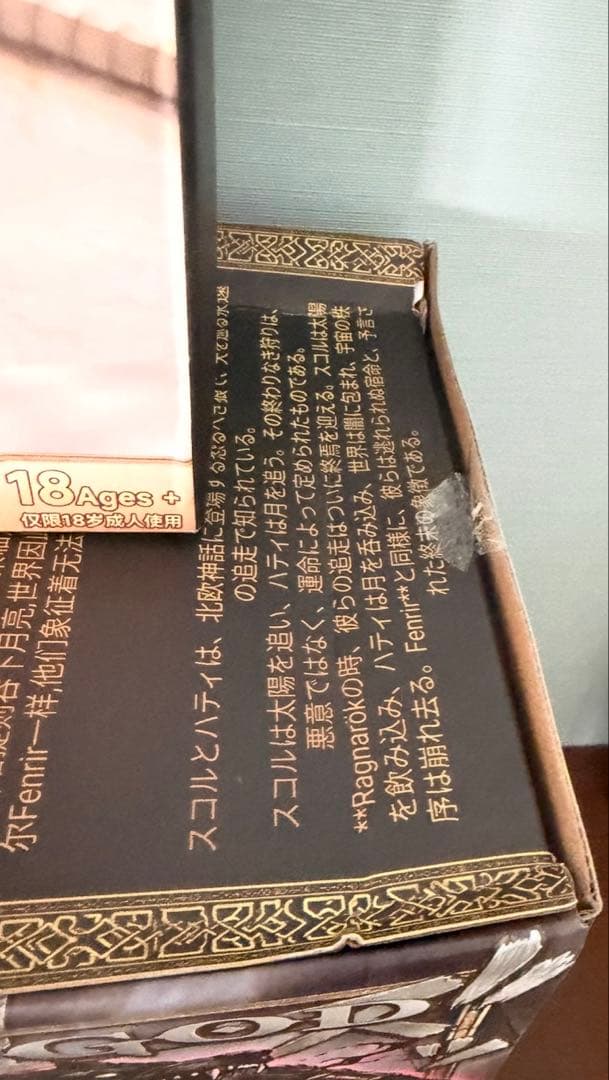 18Ages +
仅限18岁成人使用
月亮,世界因
尔Fenrir一样,他们象征着无法
スコルとハティは、北欧神話に登場する恐るべき狼で、天を巡る永遠
の追走で知られている。
スコルは太陽を追い、ハティは月を追う。その終わりなき狩りは、
悪意ではなく、運命によって定められたものである。
**Ragnarökの時、彼らの追走はついに終焉を迎える。スコルは太陽
を飲み込み、ハティは月を呑み込み、世界は闇に包まれ、宇宙の秩
序は崩れ去る。Fenrir**と同様に、彼らは逃れられぬ宿命と、予言さ
れた終末の象徴である。
GOD